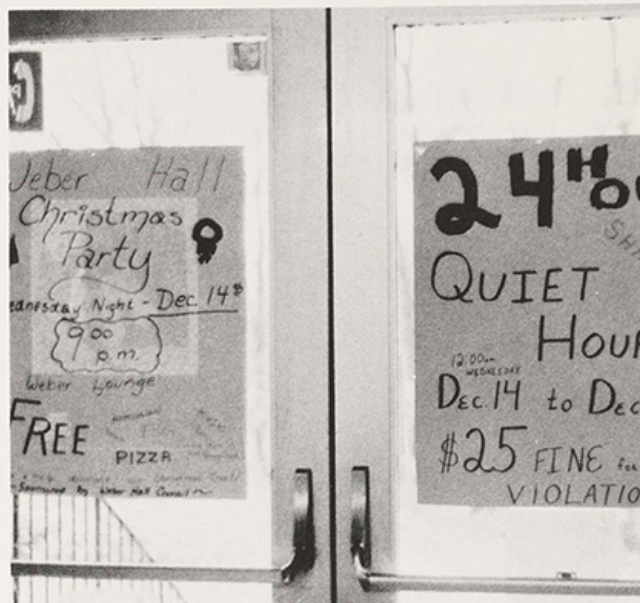 Weber Hall
Christmas
Party
Wednesday Night - Dec. 14th
9:00
p.m.
Weber Lounge
FREE
PIZZA
Sponsored by Weber Hall Council
24 HOU
QUIET
HOUR
12:00am
WEDNESDAY
Dec. 14 to Dec
$25 FINE for
VIOLATIO